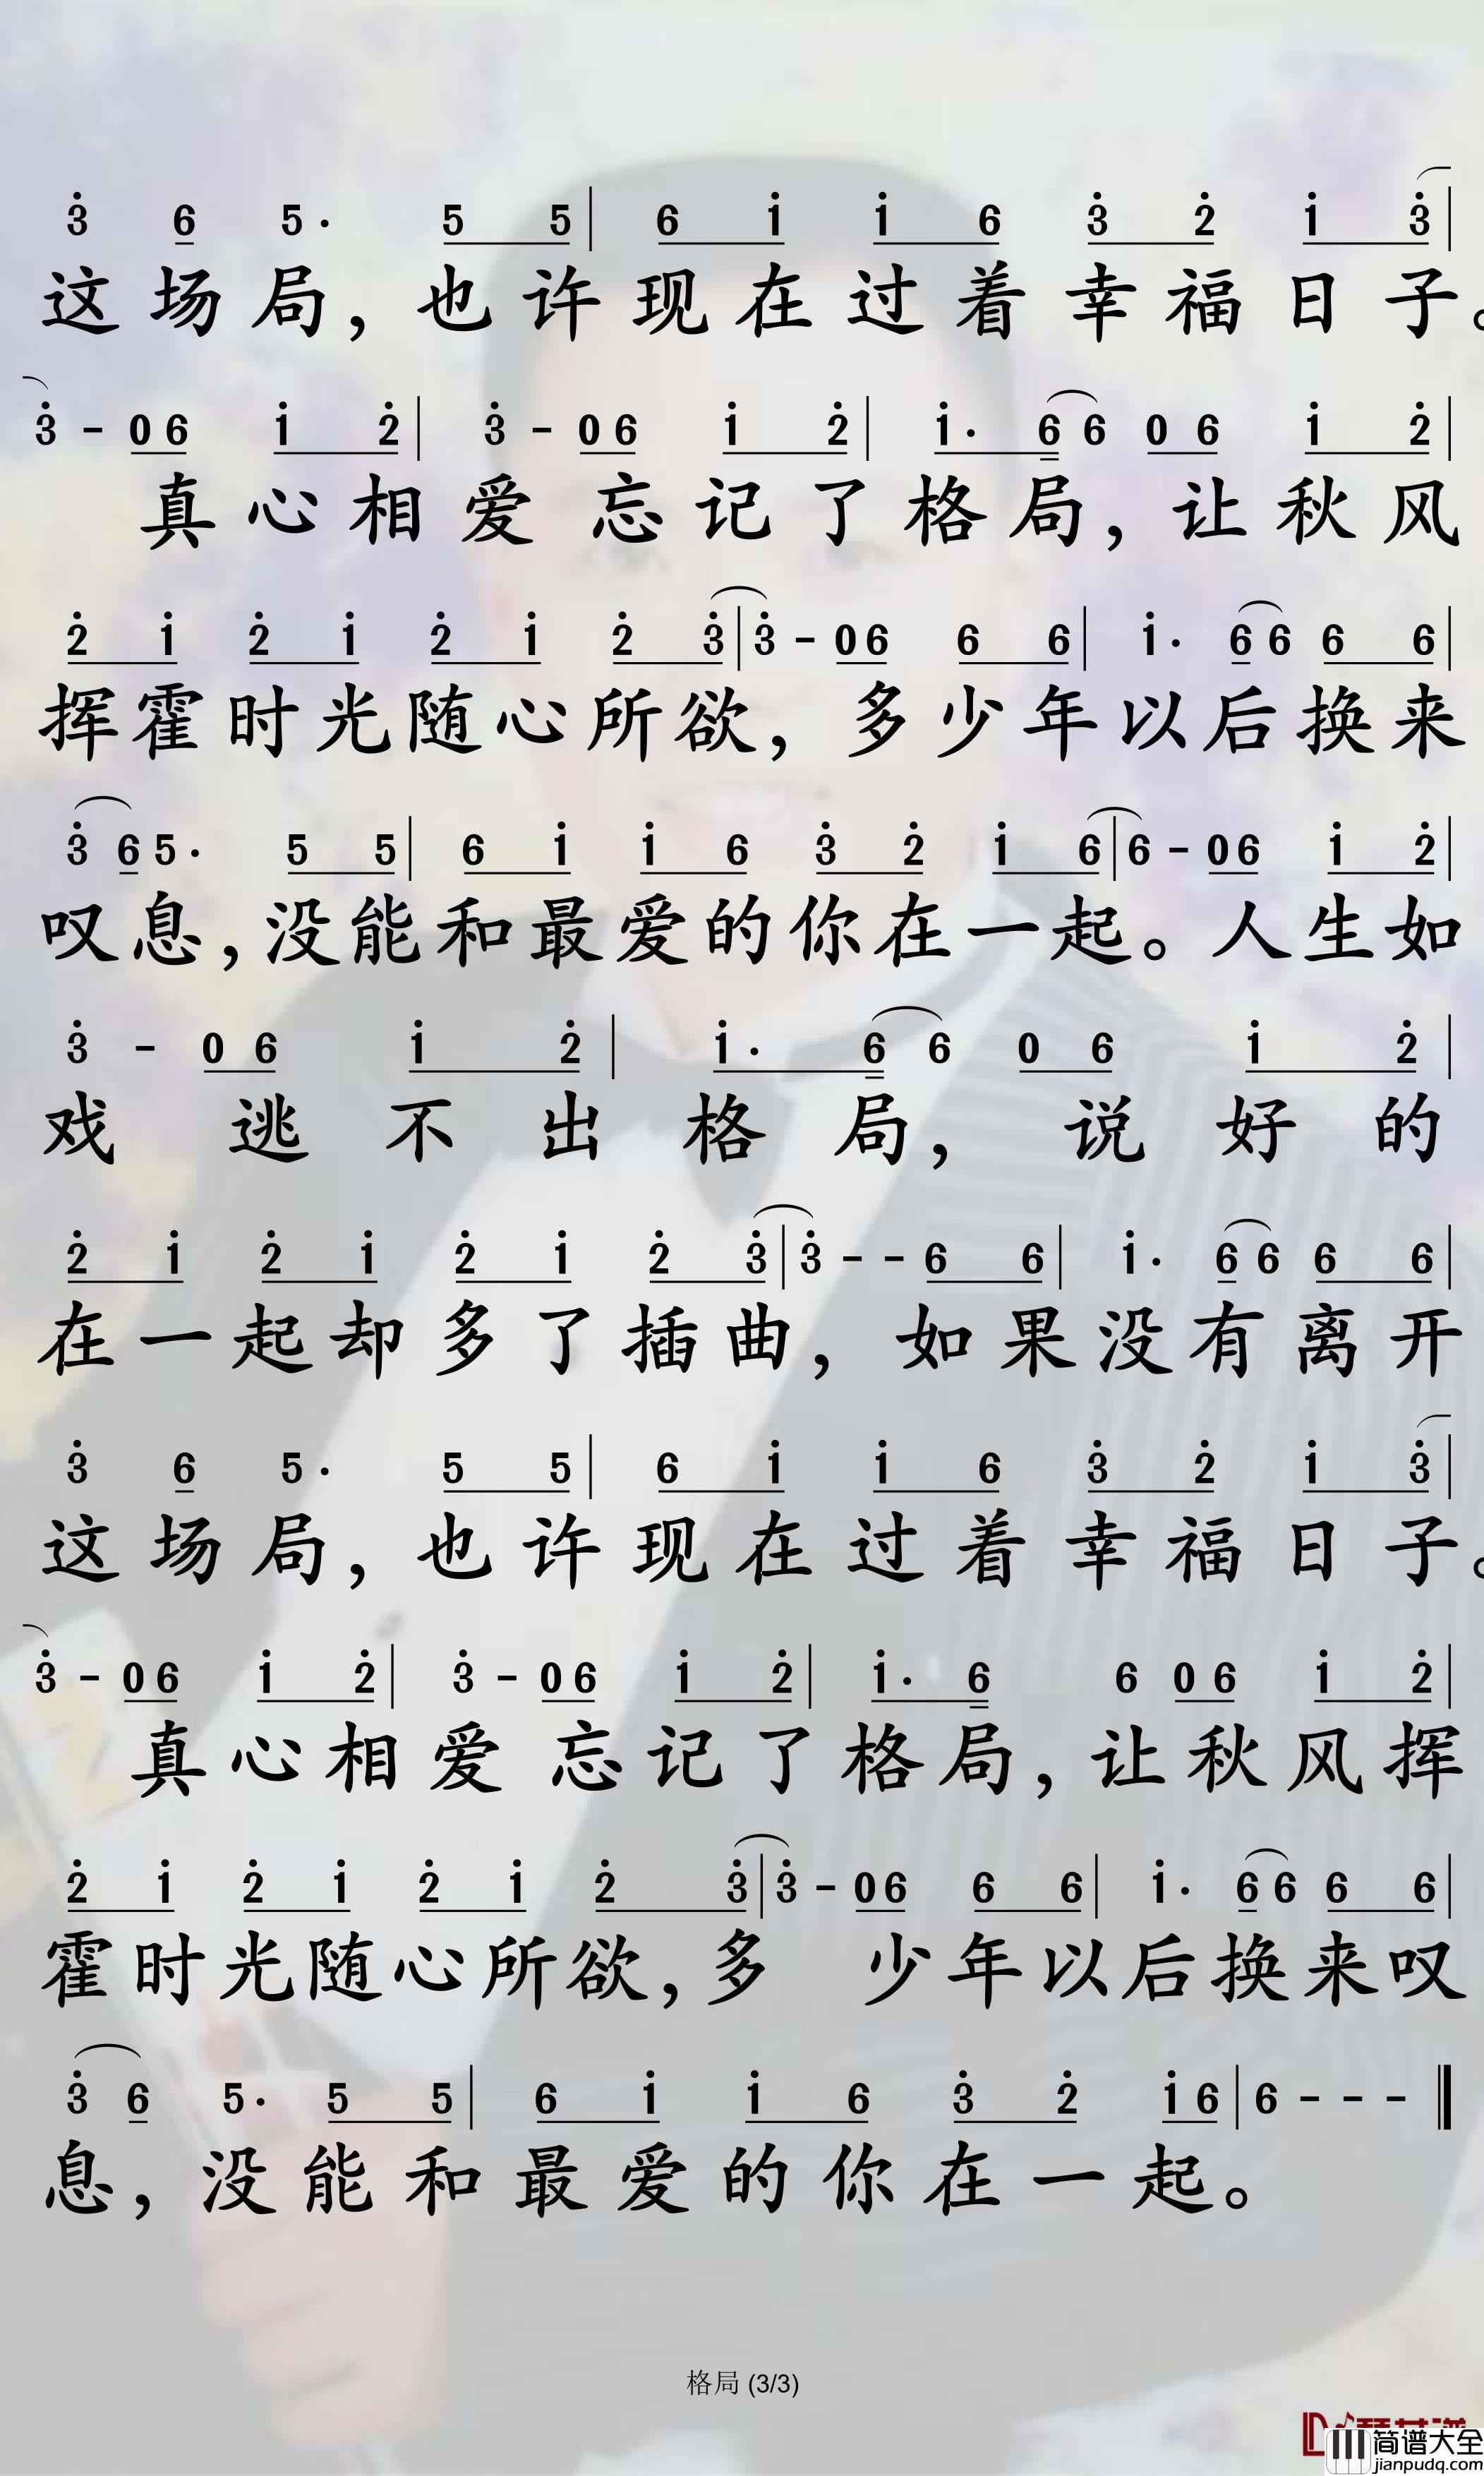 3̇ 6 5· 5 5 | 6 1̇ 1̇ 6 3̇ 2̇ 1̇ 3̇ |
这场局，也许现在过着幸福日子。
3̇ - 0 6 1̇ 2̇ | 3̇ - 0 6 1̇ 2̇ | 1̇· 6 6 0 6 1̇ 2̇ |
真心相爱忘记了格局，让秋风
2̇ 1̇ 2̇ 1̇ 2̇ 1̇ 2̇ 3̇ | 3̇ - 0 6 6 6 | 1̇· 6 6 6 6 |
挥霍时光随心所欲，多少年以后换来
3̇ 6 5· 5 5 | 6 1̇ 1̇ 6 3̇ 2̇ 1̇ 6 | 6 - 0 6 1̇ 2̇ |
叹息，没能和最爱的你在一起。人生如
3̇ - 0 6 1̇ 2̇ | 1̇· 6 6 0 6 1̇ 2̇ |
戏逃不出格局，说好的
2̇ 1̇ 2̇ 1̇ 2̇ 1̇ 2̇ 3̇ | 3̇ - - 6 6 | 1̇· 6 6 6 6 |
在一起却多了插曲，如果没有离开
3̇ 6 5· 5 5 | 6 1̇ 1̇ 6 3̇ 2̇ 1̇ 3̇ |
这场局，也许现在过着幸福日子。
3̇ - 0 6 1̇ 2̇ | 3̇ - 0 6 1̇ 2̇ | 1̇· 6 6 0 6 1̇ 2̇ |
真心相爱忘记了格局，让秋风挥
2̇ 1̇ 2̇ 1̇ 2̇ 1̇ 2̇ 3̇ | 3̇ - 0 6 6 6 | 1̇· 6 6 6 6 |
霍时光随心所欲，多少年以后换来叹
3̇ 6 5· 5 5 | 6 1̇ 1̇ 6 3̇ 2̇ 1̇ 6 | 6 - - - ‖
息，没能和最爱的你在一起。
格局 (3/3)
简谱大全
jianpudq.com